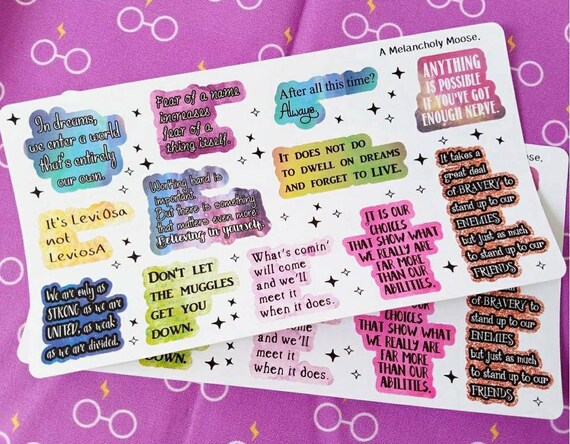 A Melancholy Moose.
In dreams,
we enter a world
that's entirely
our own.
Fear of a name
increases
fear of a
thing itself.
After all this time?
Always.
ANYTHING
IS POSSIBLE
IF YOU'VE GOT
ENOUGH NERVE.
It's LeviOsa
not
LeviosA
Working hard is
important.
But there is something
that matters even more:
Believing in yourself.
IT DOES NOT DO
TO DWELL ON DREAMS
AND FORGET TO LIVE.
It takes a
great deal
of BRAVERY to
stand up to our
ENEMIES
but just as much
to stand up to our
FRIENDS
We are only as
STRONG as we are
UNITED, as weak
as we are divided.
DON'T LET
THE MUGGLES
GET YOU
DOWN.
What's comin'
will come
and we'll
meet it
when it does.
IT IS OUR
CHOICES
THAT SHOW WHAT
WE REALLY ARE
FAR MORE
THAN OUR
ABILITIES.
Moose.
DOWN.
will come
and we'll
meet it
when it does.
CHOICES
THAT SHOW WHAT
WE REALLY ARE
FAR MORE
THAN OUR
ABILITIES.
of BRAVERY to
stand up to our
ENEMIES
but just as much
to stand up to our
FRIENDS